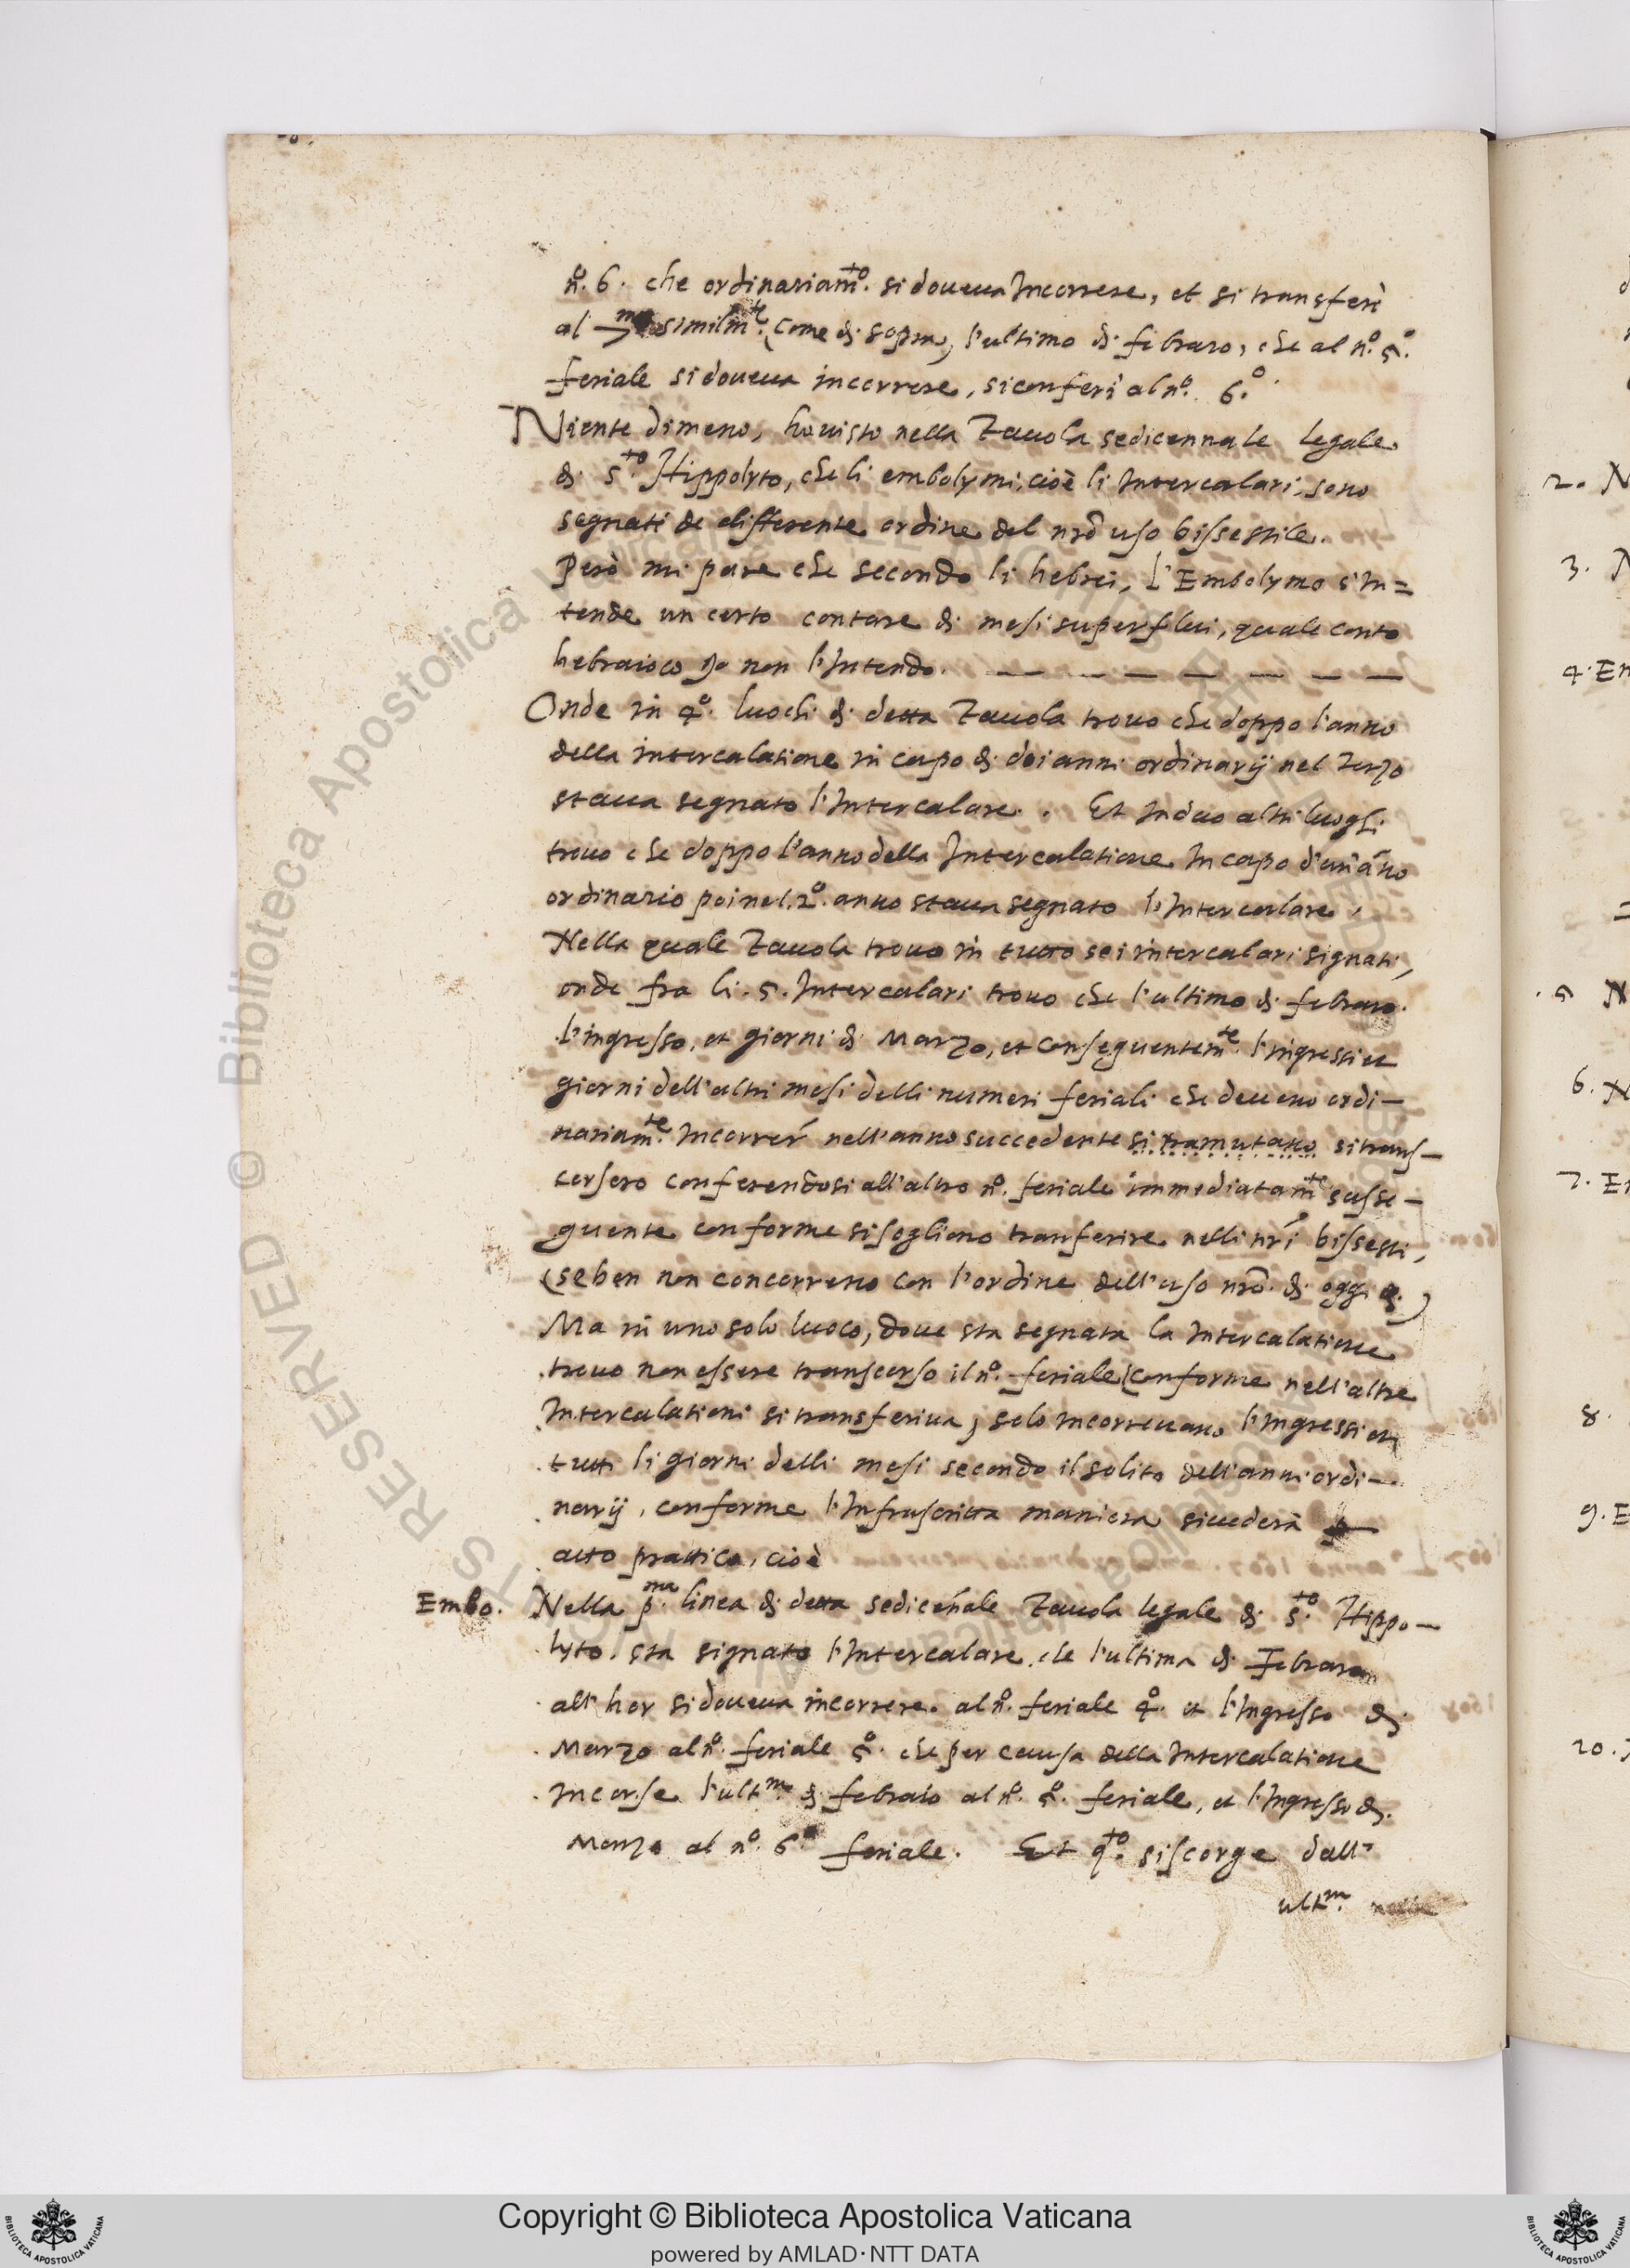 n.º 6. che ordinariam.to si doueua Incorrere, et si transferì
al 7.mo similm.te (come di sopra) l'ultimo di febraro, che al n.º 5.º
feriale si doueua incorrere, si conferì al n.º 6.º
Niente dimeno, ho uisto nella Tauola sedicennale legale
di S.to Hippolyto, che li embolymi, cioè li Intercalari, sono
segnati de differente ordine del nrõ uso bissestile.
Però mi pare che secondo li hebrei, l'Embolymo s'In=
tende un certo contare di mesi superflui, quale conto
hebraioco Io non l'Intendo. — — — — — — —
Onde in 4.º luochi di detta Tauola trouo che doppo l'anno
della intercalatione in capo di doi anni ordinarij nel Terzo
staua segnato l'Intercalare. Et In duo altri luoghi
trouo che doppo l'anno della Intercalatione In capo d'un'año
ordinario poi nel 2.º anno staua segnato l'Intercalare,
Nella quale Tauola trouo in tutto sei intercalari signati,
onde fra li .5. Intercalari trouo che l'ultimo di febraro.
l'ingresso, et giorni di Marzo, et consequentem.te l'ingressi et
giorni dell'altri mesi delli numeri feriali che deueno ordi-
nariam.te Incorrer nell'anno succedente si tramutano si trans-
corsero conferendosi all'altro n.º feriale immediatam.te susse-
quente conforme si sogliono tranferire nelli nrí bissesti,
(se ben non concorreno con l'ordine dell'uso nrõ di oggi di)
Ma in uno solo luoco, doue sta segnata la Intercalatione
trouo non essere transcorso il n.º feriale (conforme nell'altre
Intercalationi si transferiua) solo Incorreuano l'ingressi et
tutti li giorni delli mesi secondo il solito dell'anni ordi-
narij, conforme l'Infrascritta maniera si uederà
atto prattico, cioè
Embo. Nella p.ma linea di detta sediceñale Tauola legale di S.to Hippo-
lyto, sta signato l'Intercalare, che l'ultima di Febraro
all'hor si doueua incorrere. al n.º feriale 4.º et l'Ingresso di
Marzo al n.º feriale 5.º che per causa della Intercalatione
Incorse l'ult.mo di febraio al n.º 5.º feriale, et l'Ingresso di
Marzo al n.º 6.º feriale. Et q.to si scorge dall'
ult.m
2. N
3. N
4. En
5 N
6. N
7. En
8.
9. E
10.
Copyright © Biblioteca Apostolica Vaticana
powered by AMLAD·NTT DATA